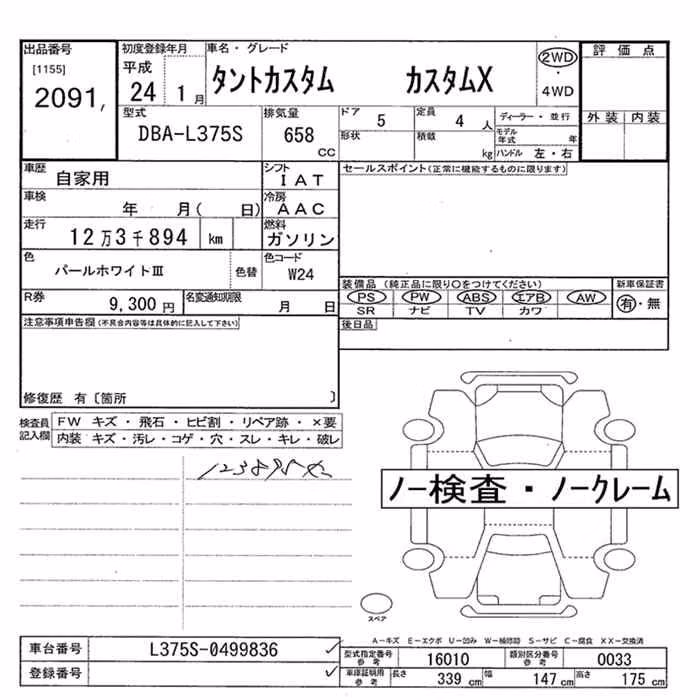 出品番号
[1155]
2091,
初度登録年月
平成
24 1 月
車名・グレード
タントカスタム カスタムX
2WD
・
4WD
評価点
外装 内装
型式
DBA-L375S
排気量
658
CC
ドア
5
定員
4 人
ディーラー・並行
形状
積載
kg
モデル年式 年
ハンドル 左・右
車歴
自家用
シフト
IAT
セールスポイント(正常に機能するものに限ります)
車検
年 月( 日)
冷房
AAC
走行
12万3千894 km
燃料
ガソリン
色
パールホワイトⅢ
色替
色コード
W24
装備品(純正品に限り○をつけてください)
新車保証書
PS PW ABS エアB AW
有・無
SR ナビ TV カワ
R券
9,300 円
名変通知期限
月 日
後日品
注意事項申告欄(不具合内容等は具体的に記入して下さい)
修復歴 有〔箇所 〕
検査員記入欄
FW キズ・飛石・ヒビ割・リペア跡・×要
内装 キズ・汚レ・コゲ・穴・スレ・キレ・破レ
ノー検査・ノークレーム
スペア
A-キズ E-エクボ U-凹み W-補修跡 S-サビ C-腐食 XX-交換済
車台番号
L375S-0499836
登録番号
型式指定番号
参考
16010
類別区分番号
参考
0033
車庫証明用
参考
長さ
339 cm
幅
147 cm
高さ
175 cm